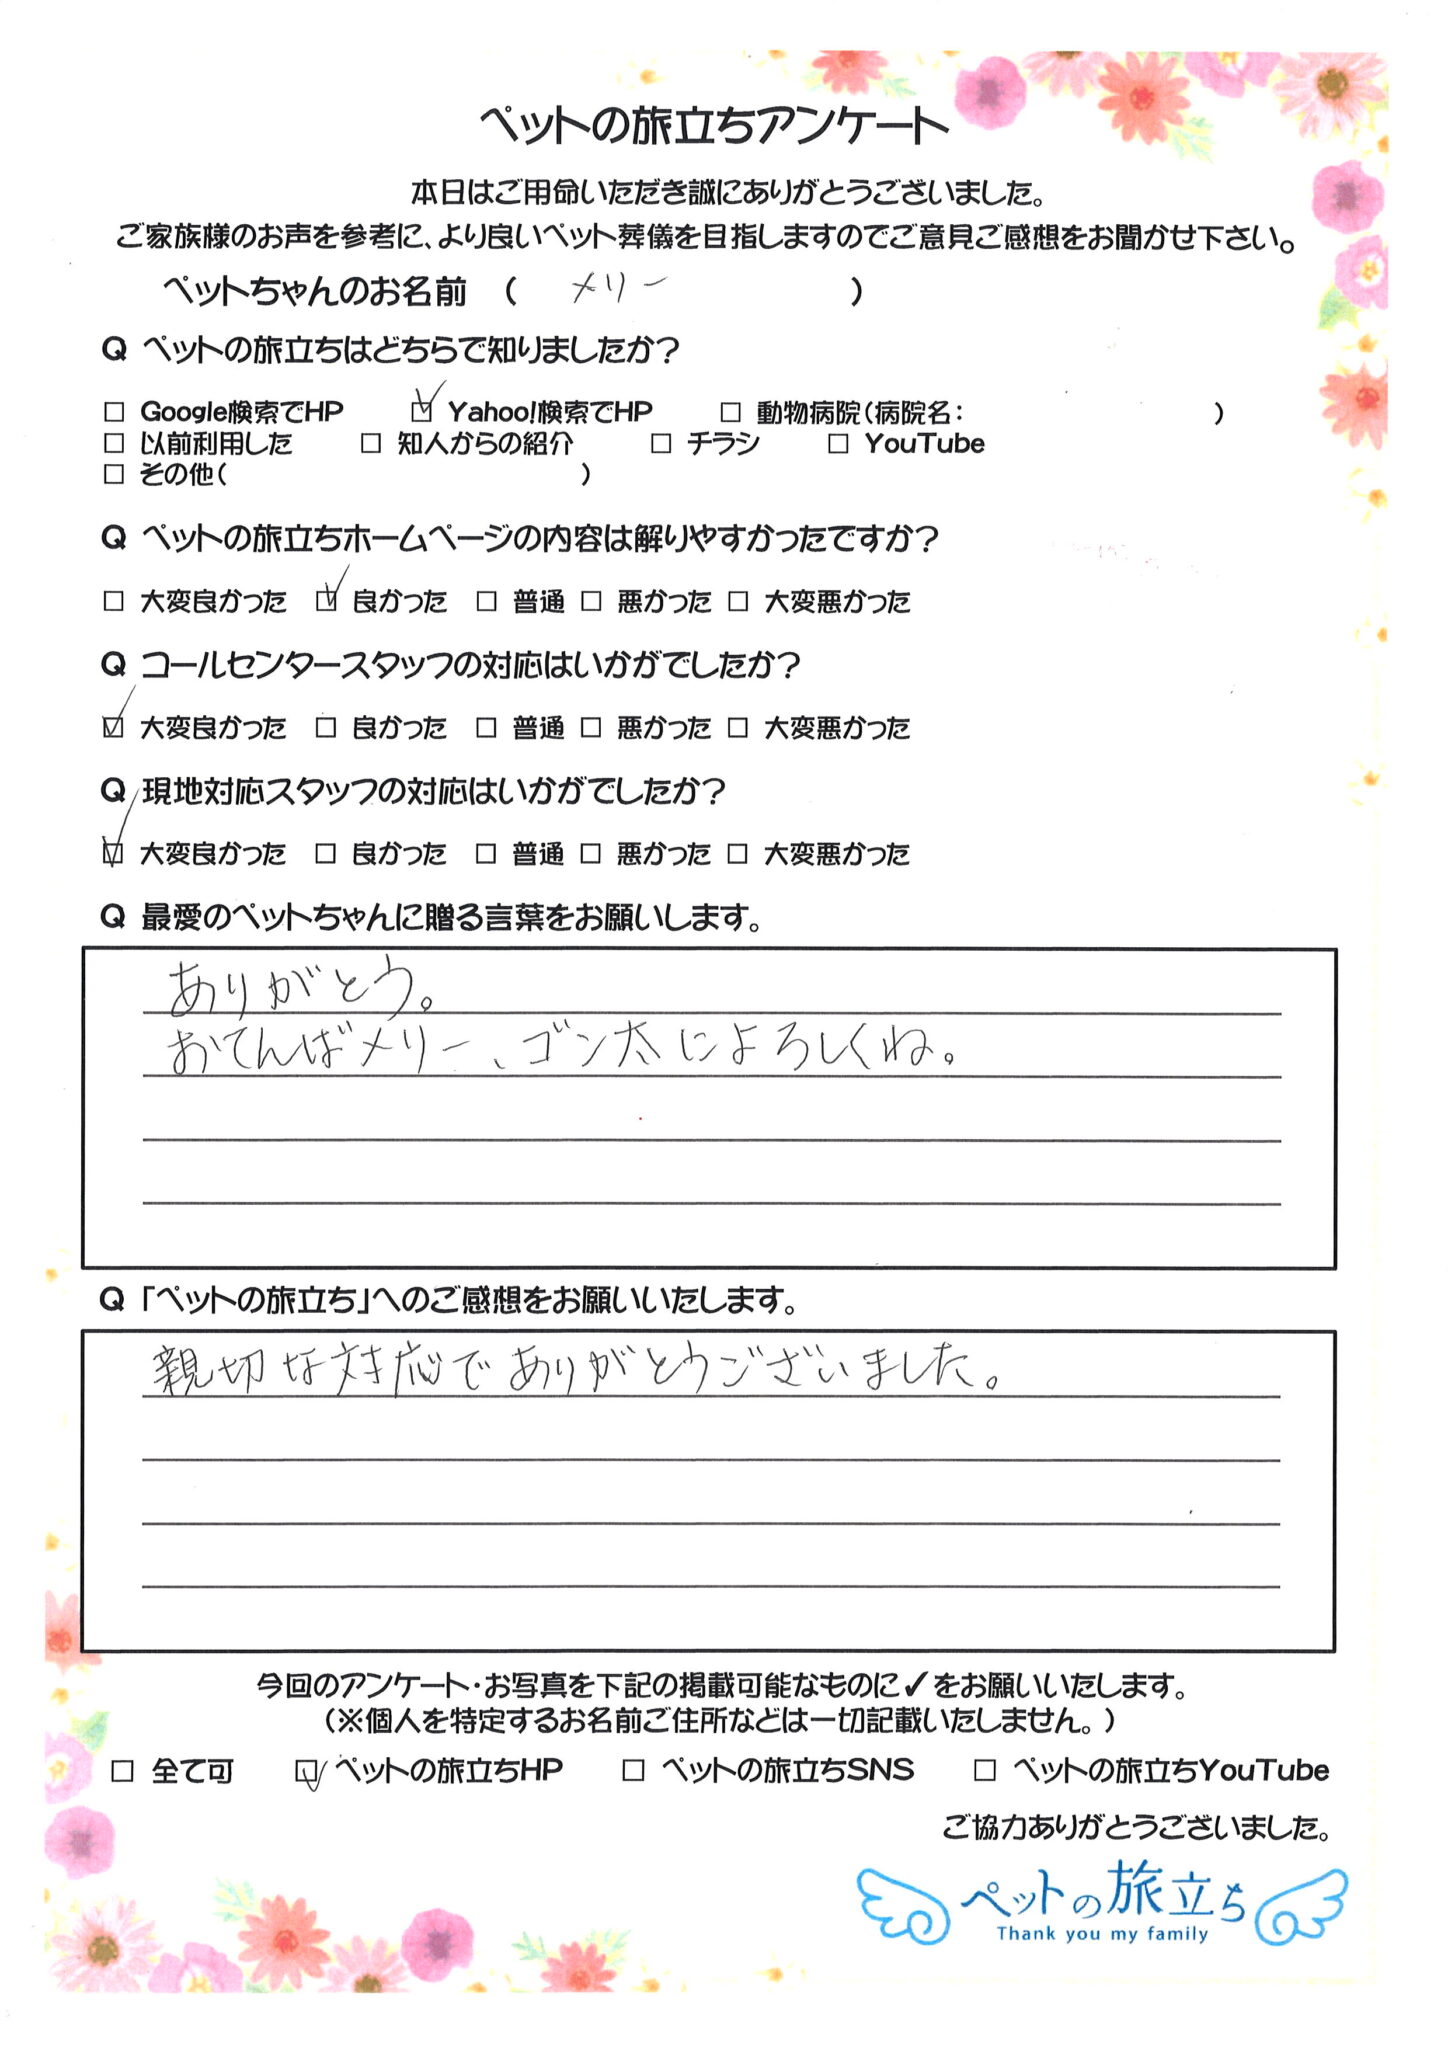 ペットの旅立ちアンケート
本日はご用命いただき誠にありがとうございました。
ご家族様のお声を参考に、より良いペット葬儀を目指しますのでご意見ご感想をお聞かせ下さい。
ペットちゃんのお名前 ( メリー )
Q ペットの旅立ちはどちらで知りましたか?
□ Google検索でHP ☑ Yahoo!検索でHP □ 動物病院(病院名: )
□ 以前利用した □ 知人からの紹介 □ チラシ □ YouTube
□ その他( )
Q ペットの旅立ちホームページの内容は解りやすかったですか?
□ 大変良かった ☑ 良かった □ 普通 □ 悪かった □ 大変悪かった
Q コールセンタースタッフの対応はいかがでしたか?
☑ 大変良かった □ 良かった □ 普通 □ 悪かった □ 大変悪かった
Q 現地対応スタッフの対応はいかがでしたか?
☑ 大変良かった □ 良かった □ 普通 □ 悪かった □ 大変悪かった
Q 最愛のペットちゃんに贈る言葉をお願いします。
ありがとう。
おてんばメリー、ゴン太によろしくね。
Q 「ペットの旅立ち」へのご感想をお願いいたします。
親切な対応でありがとうございました。
今回のアンケート・お写真を下記の掲載可能なものに✓をお願いいたします。
(※個人を特定するお名前ご住所などは一切記載いたしません。)
□ 全て可 ☑ ペットの旅立ちHP □ ペットの旅立ちSNS □ ペットの旅立ちYouTube
ご協力ありがとうございました。
ペットの旅立ち
Thank you my family